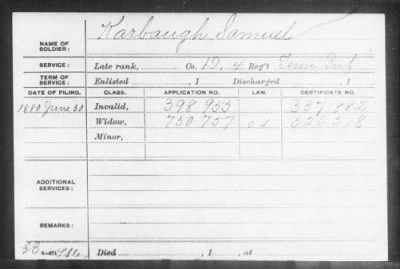 Karbaugh, Samuel
NAME OF SOLDIER:
SERVICE: Late rank, Co. D, 4 Reg't Tenn
TERM OF SERVICE: Enlisted , 1 Discharged , 1
DATE OF FILING. CLASS. APPLICATION NO. LAW. CERTIFICATE NO.
1880 June 30 Invalid, 398 955 337 882
Widow, 750 757
Minor,
ADDITIONAL SERVICES:
REMARKS:
Died , 1 , at